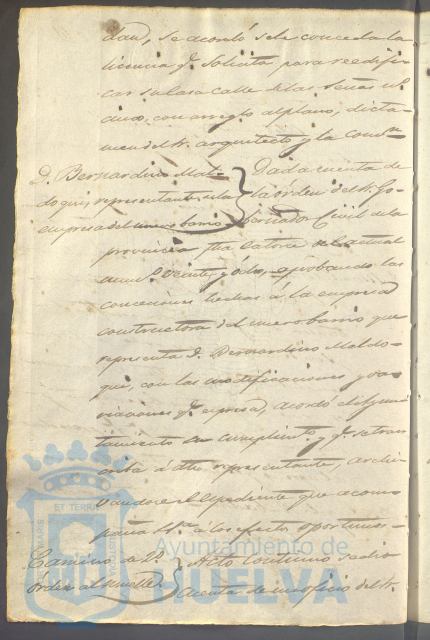 dad, se acordó se le conceda la
licencia q.e solicita para reedifi
car su casa calle de las Señas n.º
cinco, con arreglo al plano, dicta-
men del Sr. arquitecto y la Com.on
D. Bernardino Maldo
doqui, representante de la
empresa del nuevo barrio
Dada cuenta de
la orden del Sr. Go-
bernador Civil de la
provincia fha catorce del actual
num.º veinte y ocho, aprobando las
concesiones hechas á la empresa
constructora del nuevo barrio que
representa D. Bernardino Maldo-
qui, con las modificaciones y va-
riaciones q.e expresa, acordó el Ayun-
tamiento su cumplim.to y q.e se trans
criba á dho representante, archi-
vandose el expediente que acom-
paña p.a los efectos oportunos.-
Camino de 2.º
órden al muelle
Acto continuo se dió
cuenta de un oficio del Sr.
ET TERRÆ
Ayuntamiento de
HUELVA